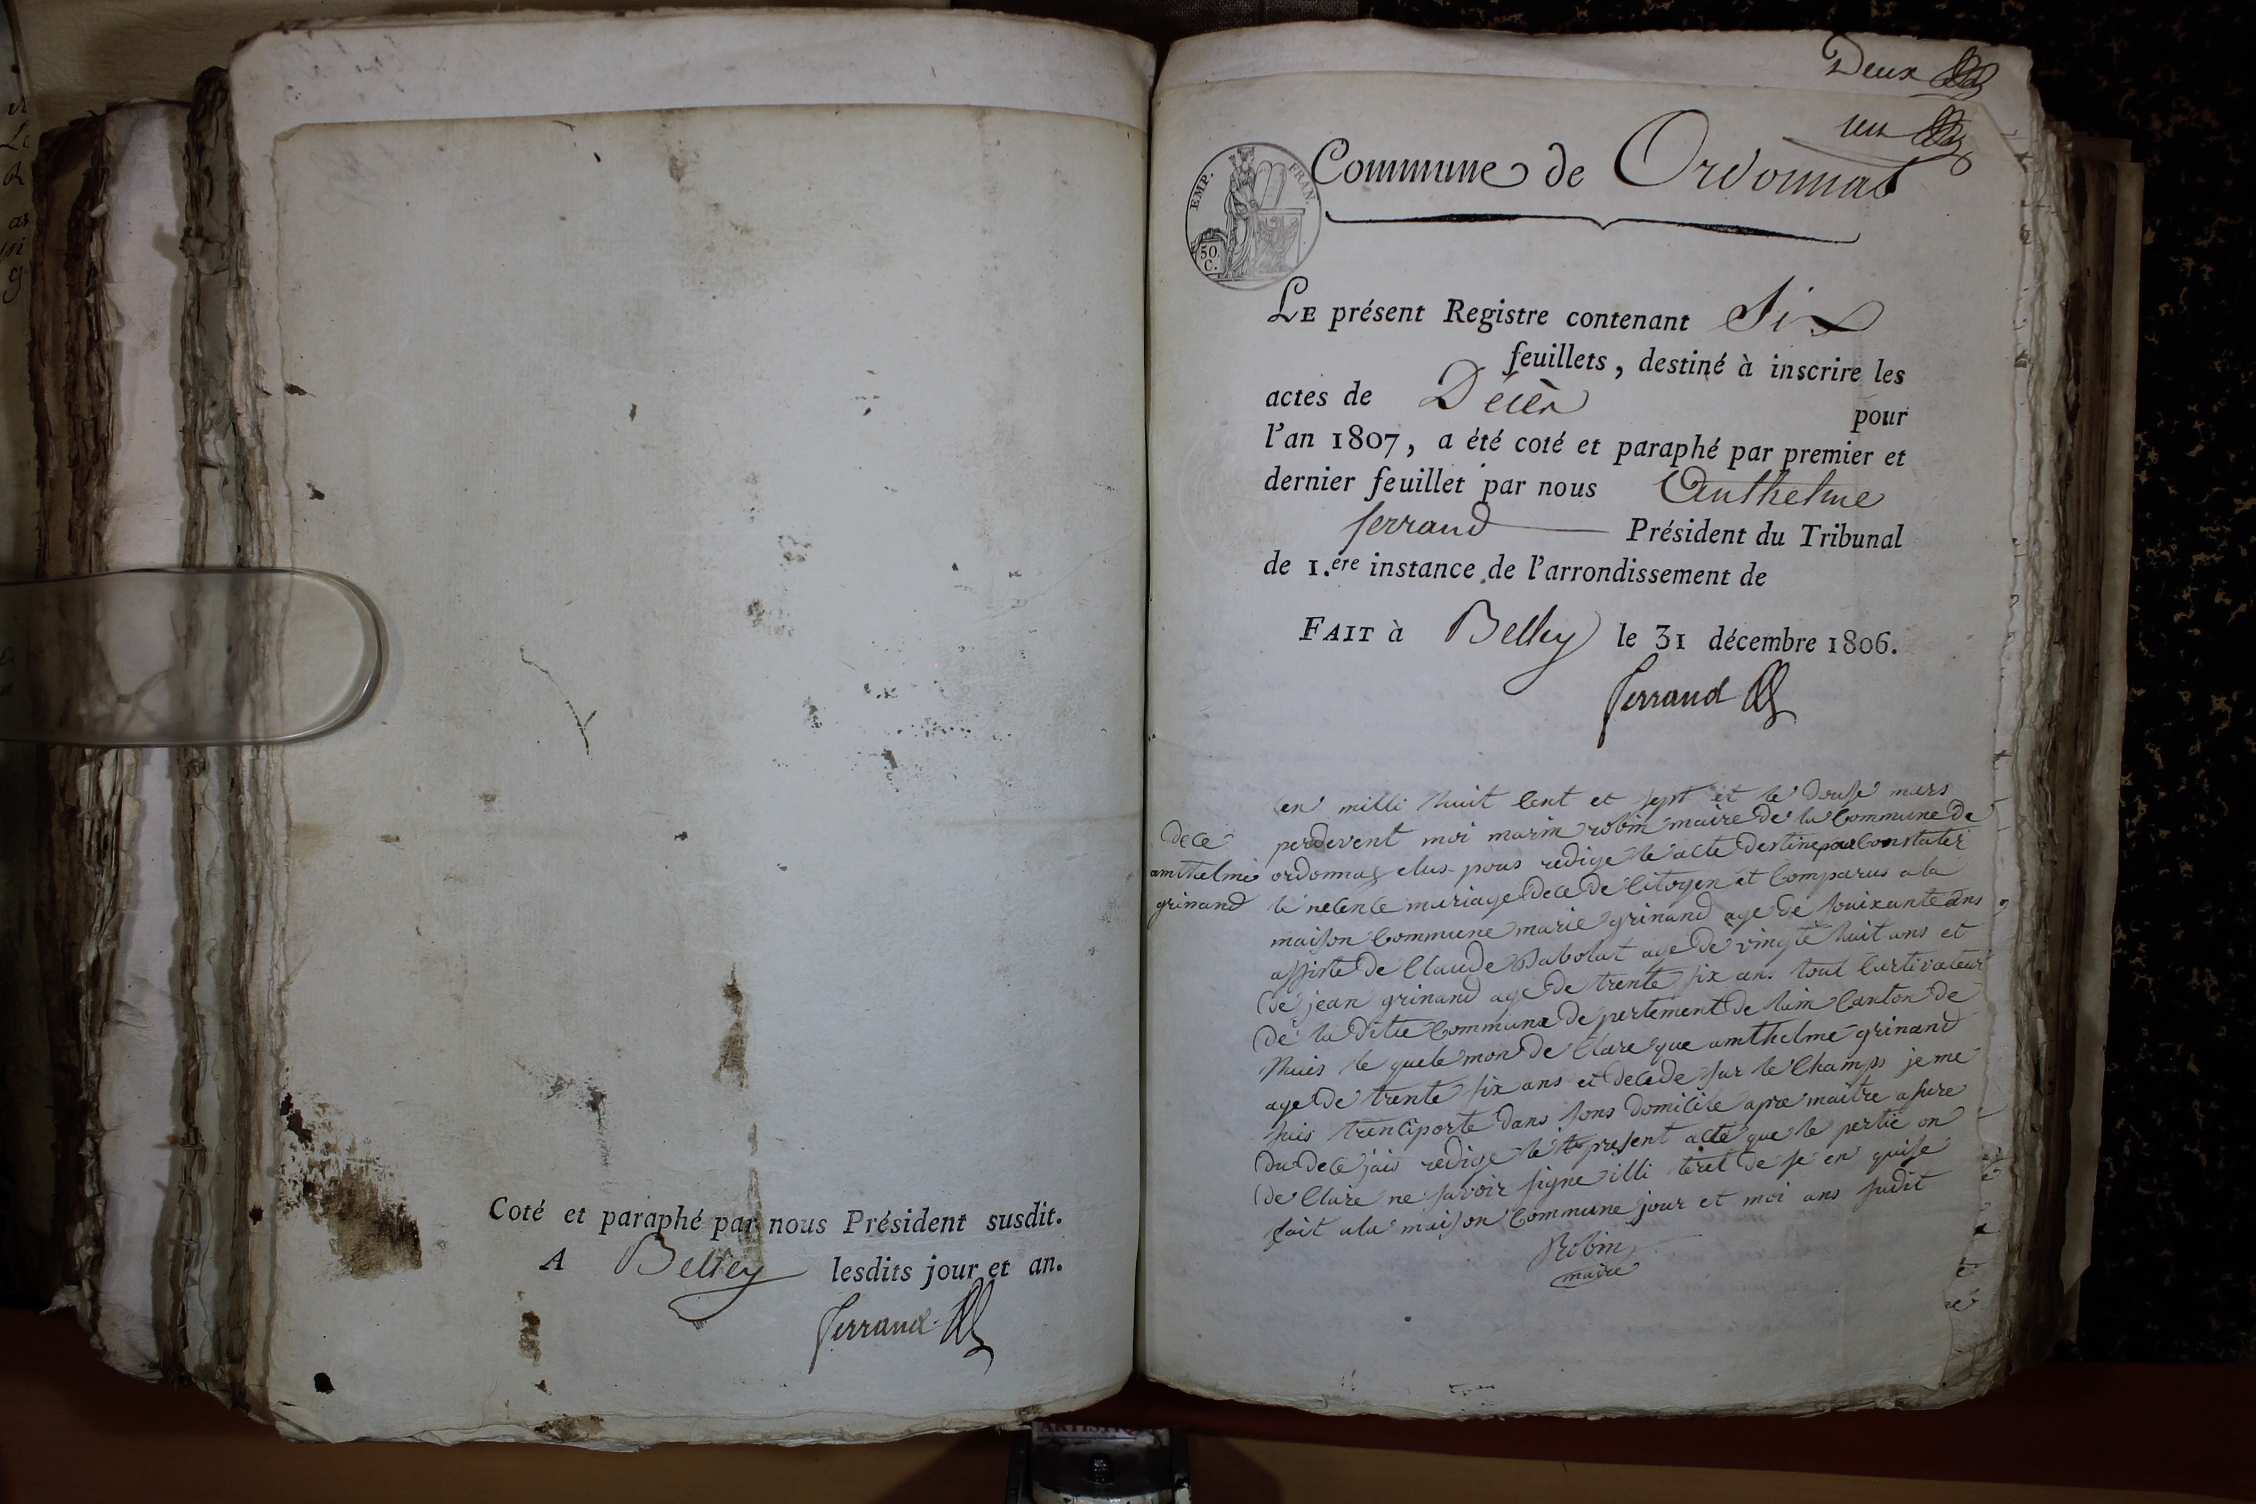 Coté et paraphé par nous Président susdit.
A Belley lesdits jour et an.
Ferrand
Deux
un
EMP. FRAN.
50 C.
Commune de Ordonnas
LE présent Registre contenant Six
feuillets, destiné à inscrire les
actes de Décès pour
l'an 1807, a été coté et paraphé par premier et
dernier feuillet par nous Anthelme
ferrand Président du Tribunal
de 1.ere instance de l'arrondissement de
FAIT à Belley le 31 décembre 1806.
Ferrand
dece
amthelme
grinand
en mille huit Cent et sept et le douse mars
perdevent moi marin robin maire de la Commune de
ordonnas elus pous redige le acte destine pour Constater
le necence mariage dece de Citoyen et Comparus a la
maison Commune marie grinand age de souixante ans
assiste de Claude Babolat age de vingte huit ans et
de jean grinand age de trente six ans tout Curtivateur
de la dite Commune depertement de lain Canton de
lhuis le quele mon de Clare que amthelme grinand
age de trente six ans et decede sur le Champs je me
suis trenciporte dans sons domicile apre maitre asure
du dece jais redige le present acte que le pertie on
de Claire ne savoir signe illi teret de se en quise
fait a la maison Commune jour et moi ans sudit
Robin
maire